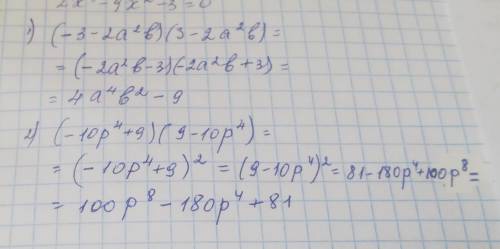 2x⁴-9x²-3=0
1) (-3-2a²b)(3-2a²b)=
=(-2a²b-3)(-2a²b+3)=
=4a⁴b²-9
2) (-10p⁴+9)(9-10p⁴)=
=(-10p⁴+9)²=(9-10p⁴)²=81-180p⁴+100p⁸=
=100p⁸-180p⁴+81